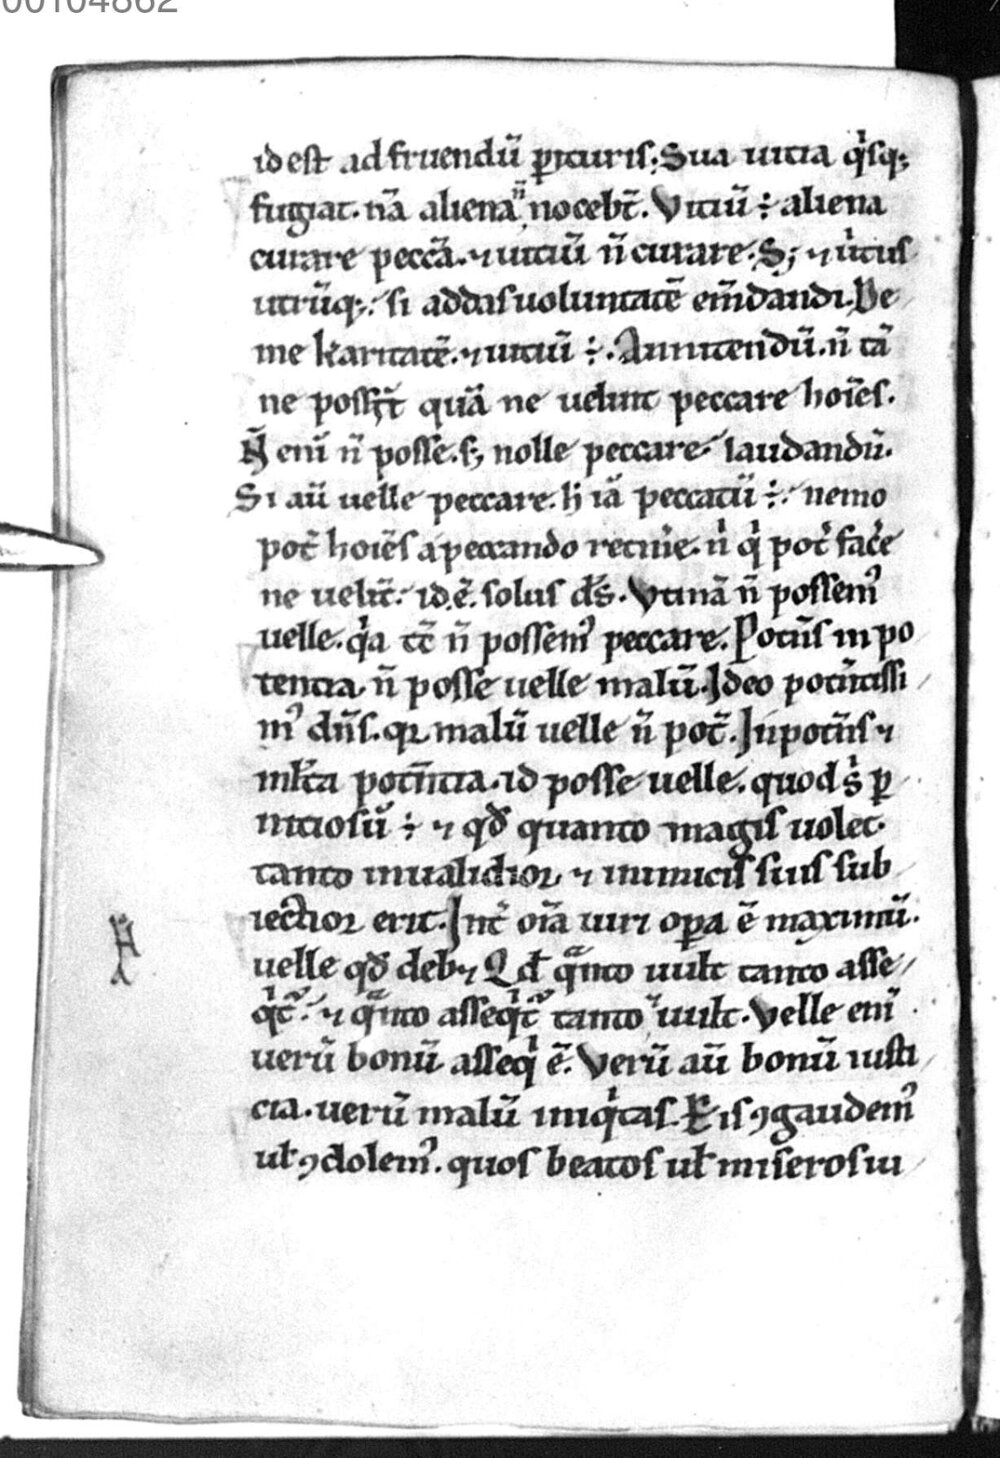 00104862
id est ad fruendū ꝑituris. Sua uicia qͥsq;
fugiat. nā aliena n̄ nocebt̄. Viciū ÷ aliena
curare peccā. ⁊ uiciū n̄ curare. S; ⁊ uͥtus
utrūq;. si addas uoluntatē em̄dandi. De
me karitatē. ⁊ uiciū ÷. Annitendū. n̄ tā
ne possīt quā ne uelint peccare hoīēs.
N̄ enī n̄ posse. s; nolle peccare laudandū.
Si aū uelle peccare. h̄ iā peccatū ÷. nemo
pot̄ hoīēs a peccando retinͥe. nͥ qͥ pot̄ facͥe
ne uelīt. id. ē. solus ds̄. Vtinā n̄ possemꝰ
uelle. qͥa tc̄ n̄ possemꝰ peccare. Potn̄s inpo
tencia n̄ posse uelle malū. Ideo potn̄tissi
mꝰ dn̄s. qꝛ malū uelle n̄ pot̄. Inpotn̄s ⁊
mīsa potn̄cia. id posse uelle. quod sͥ ꝑ
niciosū ÷ ⁊ qd̄ quanto magis uolet.
tanto inualidior ⁊ inimicis suis sub
iectior erit. Int̄ oīa uiri opa ē maximū.
uelle qd̄ deb⁊ Qd̄ qͣnto uult tanto asse
qͥtᷣ. ⁊ qͣnto asseqͥtᷣ tanto uult. Velle enī
uerū bonū asseqͥ ē. Verū aū bonū iusti
cia. uerū malū iniqͥtas. Ex is ꝯgaudemꝰ
ul̄ ꝯdolemꝰ. quos beatos ul̄ miseros ui